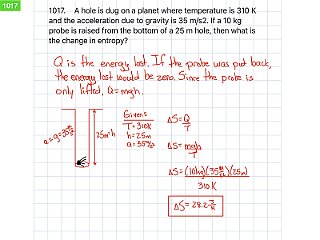 1017
1017. A hole is dug on a planet where temperature is 310 K
and the acceleration due to gravity is 35 m/s2. If a 10 kg
probe is raised from the bottom of a 25 m hole, then what is
the change in entropy?
Q is the energy lost. If the probe was put back,
the energy lost would be zero. Since the probe is
only lifted, Q=mgh.
a=g=35m/s²
25m=h
Givens
T=310K
h=25m
a=35m/s²
ΔS=Q/T
ΔS=mgh/T
ΔS=(10kg)(35m/s²)(25m)
310K
ΔS=28.2 J/K